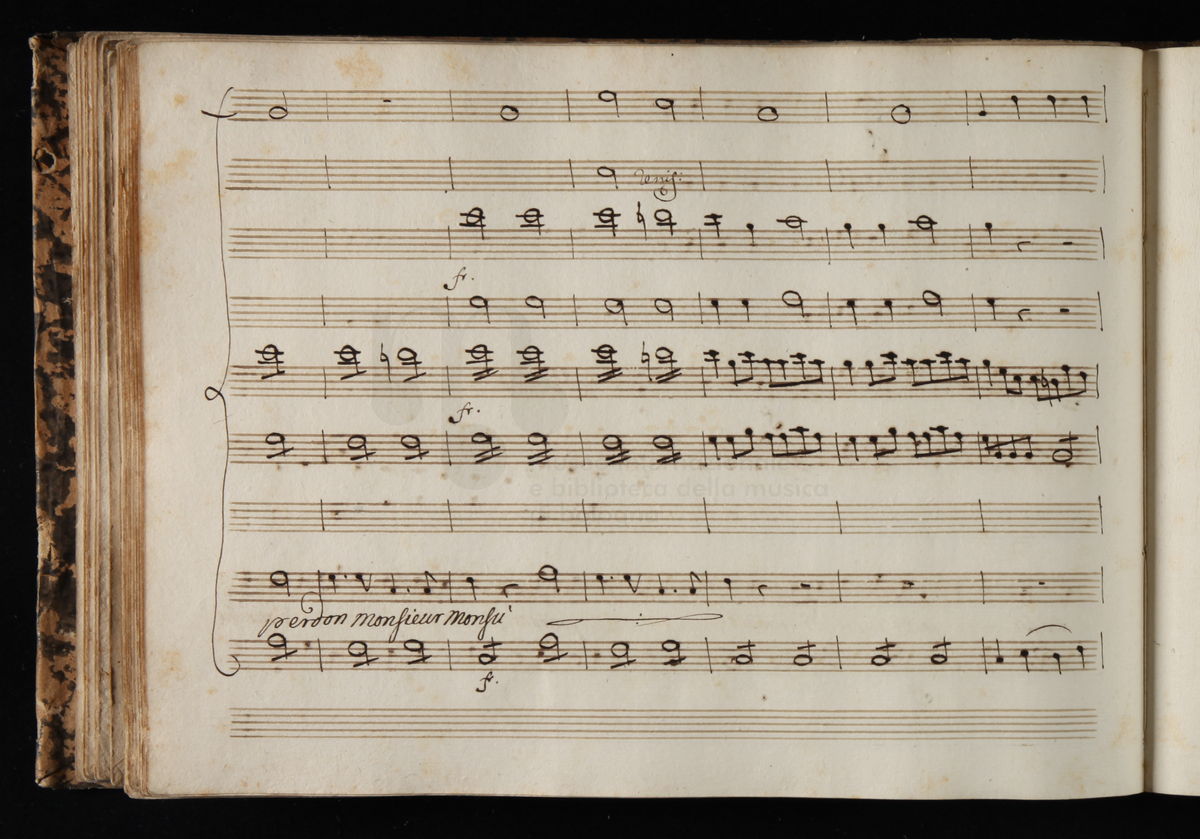 Unis:
fr.
fr.
e biblioteca della musica
perdon Monsieur Monsù
f.